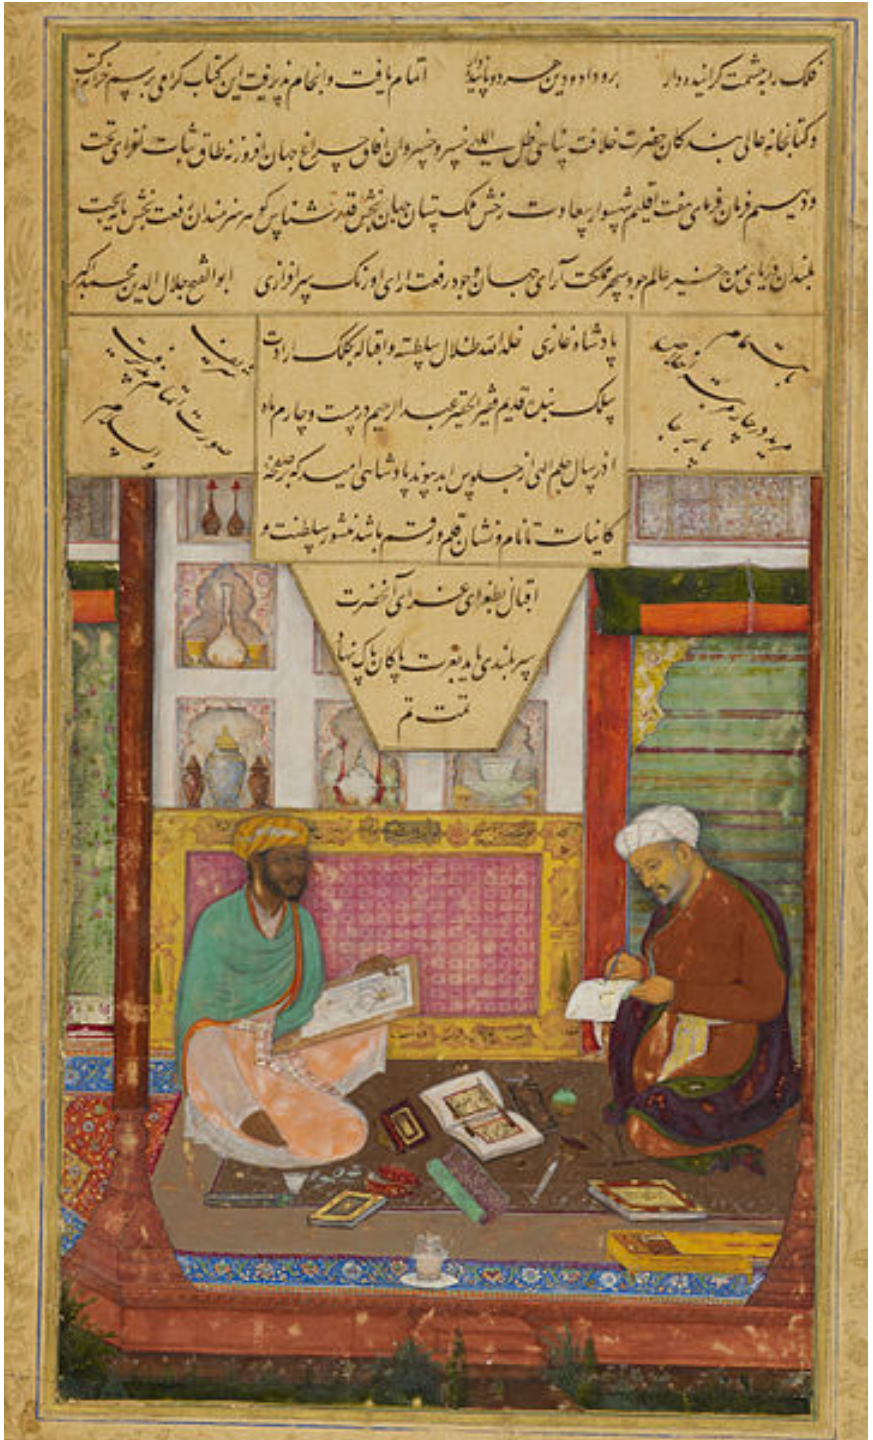 فلک را به حشمت گراینده دار برو داد و دین هر دو پاینده دار اتمام یافت و انجام پذیرفت این کتاب گرامی برسم خزانه
و کتابخانه عالی بندکان حضرت خلافت پناهی ظل اللهی خسرو خسروان افاق چراغ جهان افروز نه طاق ثبات تخت
و دیهیم فرمان فرمای هفت اقلیم شهسوار سعادت رخش ملک ستان جهان بخش قدر شناس هنرمندان رفعت بخش پایه بخت
بلندان دریای موج خیز عالم جود سپهر مملکت آرای جهان وجود رفعت ارای اورنک سرافرازی ابوالفتح جلال الدین محمد اکبر
پادشاه غازی خلد الله ظلال سلطنته و اقباله بکلک ارادت
سلک بنده قدیم فقیر الحقیر عبد الرحیم در بیست و چارم ماه
اذر سال چلم الهی از جلوس ابد پیوند پادشاهی امید که بر صفحه
کاینات تا نام و نشان قلم و رقم باشد منشور سلطنت و
اقبال بطغرای غرای آنحضرت
سربلندی یابد بعزت پاکان پاک نهاد
تمت تم
صورت اتمام پذیرفت
والسلام